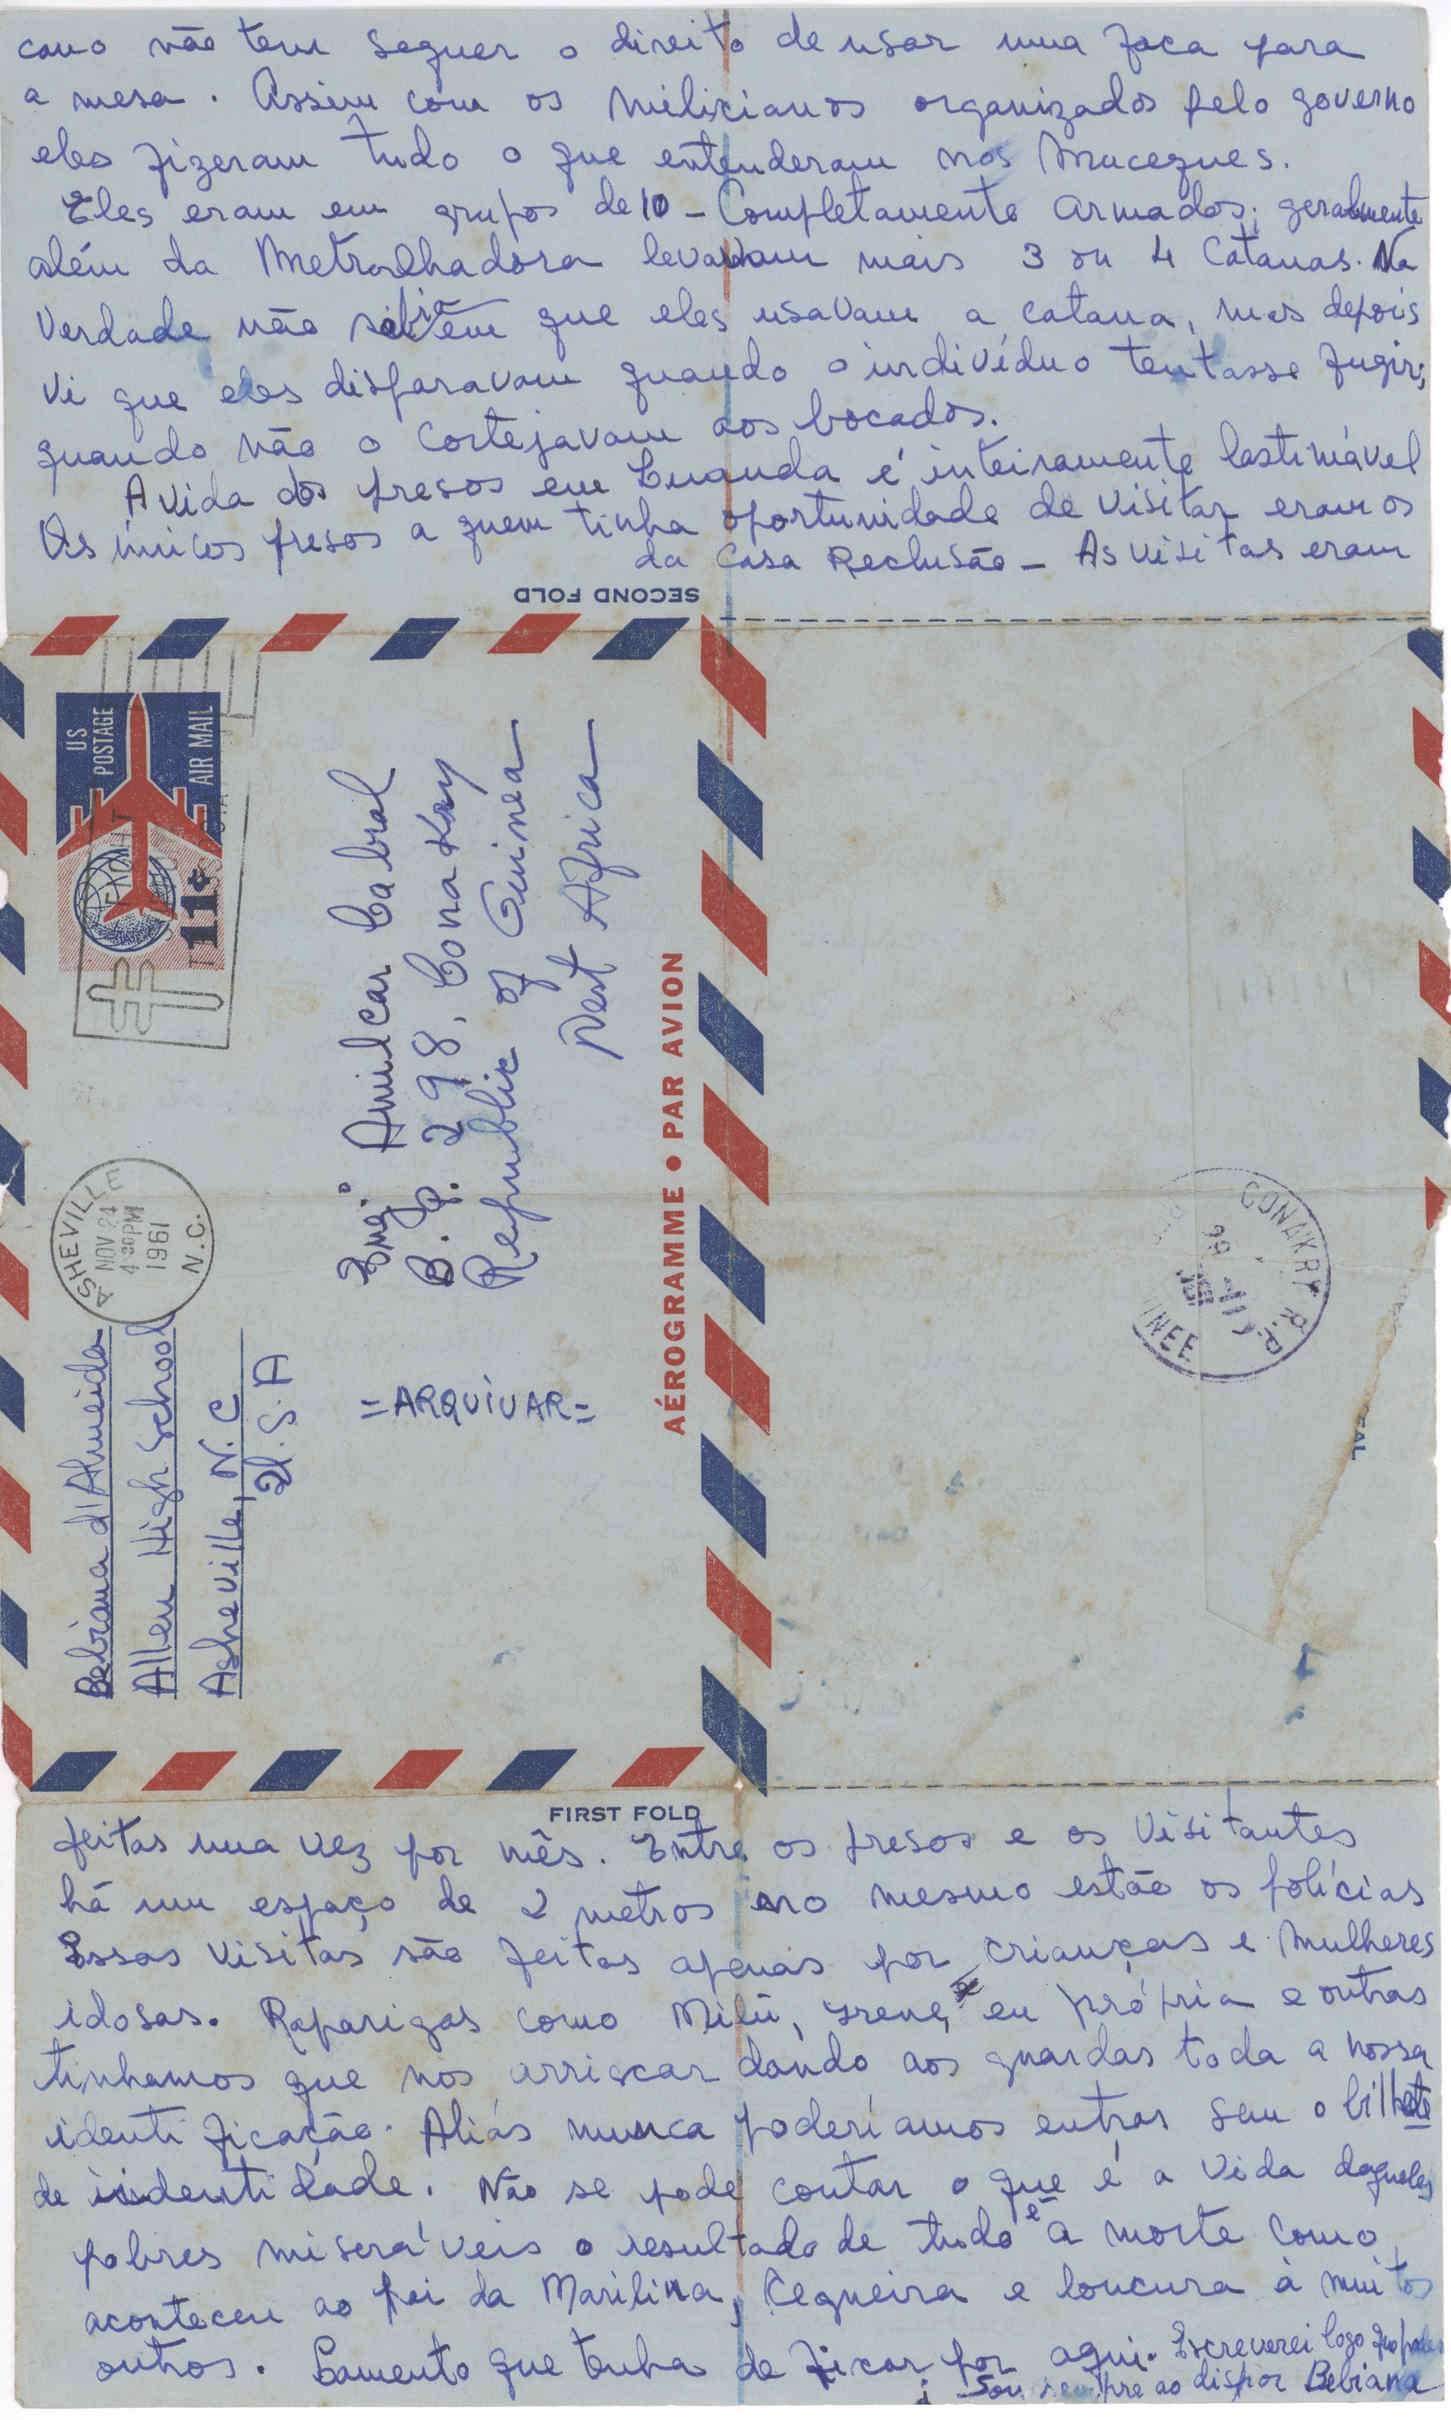 cano não tem sequer o direito de usar uma faca para
a mesa. Assim com os milicianos organizados pelo governo
eles fizeram tudo o que entenderam nos Muceques.
Eles eram em grupos de 10 - Completamente armados; geralmente
além da Metralhadora levavam mais 3 ou 4 Catanas. Na
verdade não sabia em que eles usavam a catana, mas depois
vi que eles disparavam quando o indivíduo tentasse fugir;
quando não o cortejavam aos bocados.
A vida dos presos em Luanda é inteiramente lastimável
Os únicos presos a quem tinha oportunidade de visitar eram os
da Casa Reclusão - As visitas eram
SECOND FOLD
US
POSTAGE
AIR MAIL
11¢
ASHEVILLE
NOV 24
4 30 PM
1961
N.C.
Bebiana d'Almeida
Allen High School
Asheville, N.C
U.S.A
Eng.º Amilcar Cabral
B.P. 298, Conakry
Republic of Guinea
West Africa
=ARQUIVAR=
AÉROGRAMME • PAR AVION
CONAKRY R.P.
FIRST FOLD
feitas uma vez por mês. Entre os presos e os visitantes
há um espaço de 2 metros no mesmo estão os polícias
Essas visitas são feitas apenas por crianças e mulheres
idosas. Raparigas como Milú, Irene, eu própria e outras
tinhamos que nos arriscar dando aos guardas toda a nossa
identificação. Aliás nunca poderíamos entrar sem o bilhete
de identidade. Não se pode contar o que é a vida daqueles
pobres miseráveis o resultado de tudo é a morte como
aconteceu ao pai da Marilina, Cegueira e loucura à muitos
outros. Lamento que tenha de ficar por aqui. Escreverei logo
Sou sempre ao dispor Bebiana